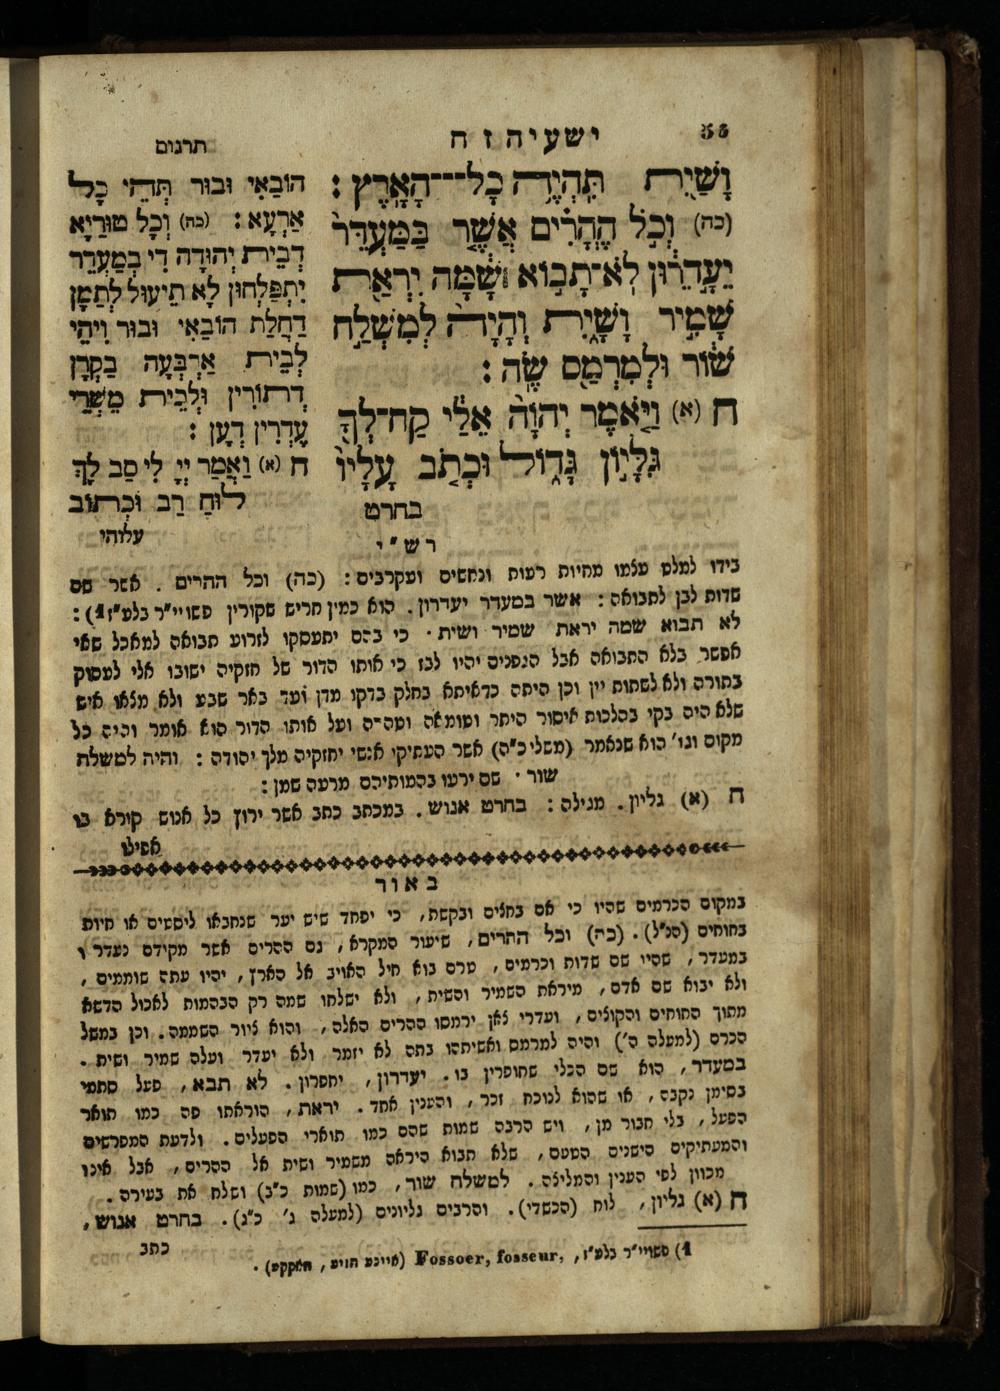 ישעיה ז ח
תרגום
וָשַׁיִת תִּהְיֶה כָל־הָאָרֶץ :
(כה) וְכֹל הֶהָרִים אֲשֶׁר בַּמַּעְדֵּר
יֵעָדֵרוּן לֹא־תָבוֹא שָׁמָּה יִרְאַת
שָׁמִיר וָשָׁיִת וְהָיָה לְמִשְׁלַח
שׁוֹר וּלְמִרְמַס שֶׂה :
ח (א) וַיֹּאמֶר יְהוָה אֵלַי קַח־לְךָ
גִּלָּיוֹן גָּדוֹל וּכְתֹב עָלָיו
בחרט
הוֹבָאֵי וּבוּר תְּהֵי כָל
אַרְעָא : (כה) וְכָל טוּרַיָא
דְבֵית יְהוּדָה דִי בְמַעְדֵר
יִתְפַּלְחוּן לָא תֵיעוּל לְתַמָן
דַחֲלַת הוֹבָאֵי וּבוּר וִיהֵי
לְבֵית אַרְבָּעָה בַקְרָן
דְתוֹרִין וּלְבֵית מַשְׁרֵי
עֶדְרִין דְעָן :
ח (א) וַאֲמַר יְיָ לִי סַב לָךְ
לוּחַ רַב וּכְתוֹב
עלוהי
רש"י
בידו למלט עצמו מחיות רעות ונחשים ועקרבים : (כה) וכל ההרים . אשר שם
שדות לבן לתבואה : אשר במעדר יעדרון . הוא כמין חריש שקורין פשויי"ר בלע"ז 1) :
לא תבוא שמה יראת שמיר ושית . כי בהם יתעסקו לזרוע תבואה למאכל שאי
אפשר בלא התבואה אבל הגפנים יהיו לבז כי אותו הדור של חזקיה ישובו אלי לעסוק
בתורה ולא לשתות יין וכן היתה כדאיתא בחלק בדקו מדן ועד באר שבע ולא מצאו איש
שלא היה בקי בהלכות איסור היתר וטומאה וטהרה ועל אותו הדור הוא אומר והיה כל
מקום וגו' הוא שנאמר (משלי כ"ה) אשר העתיקו אנשי יחזקיה מלך יהודה : והיה למשלח
שור . שם ירעו בהמותיהם מרעה שמן :
ח (א) גליון . מגילה : בחרט אנוש . במכתב כתב אשר ירוץ כל אנוש קורא בו
אפילו
באור
במקום הכרמים שהיו כי אם בחצים ובקשת , כי יפחד שיש יער שנחבאו ליסטים או חיות
בחוחים (הנ"ל) . (כה) וכל ההרים , שיעור המקרא , גם ההרים אשר מקידם נעדרו
במעדר , שהיו שם שדות וכרמים , טרם בוא חיל האויב אל הארץ , יהיו עתה שוממים ,
ולא יבוא שם אדם , מיראת השמיר והשית , ולא ישלחו שמה רק הבהמות לאכול הדשא
מתוך החוחים והקוצים , ועדרי צאן ירמסו ההרים האלה , והוא ציור השממה . וכן במשל
הכרם (למעלה ה') והיה למרמס ואשיתהו בתה לא יזמר ולא יעדר ועלה שמיר ושית .
במעדר , הוא שם הכלי שחופרין בו . יעדרון , יחפרון . לא תבא , פעל סתמי
בסימן נקבה , או שהוא לנוכח זכר , והענין אחד . יראת , הוראתו פה כמו תואר
הפעל , בלי חבור מן , ויש הרבה שמות שהם כמו תוארי הפעלים . ולדעת המפרשים
והמעתיקים הישנים הטעם , שלא תבוא היראה משמיר ושית אל ההרים , אבל אינו
מכוון לפי הענין והמליצה . למשלח שור , כמו (שמות כ"ב) ושלח את בעירה .
ח (א) גליון , לוח (הכשדי) . והרבים גליונים (למעלה ג' כ"ג) . בחרט אנוש ,
כתב
1) פשויי"ר בלע"ז , Fossoer, fosseur,